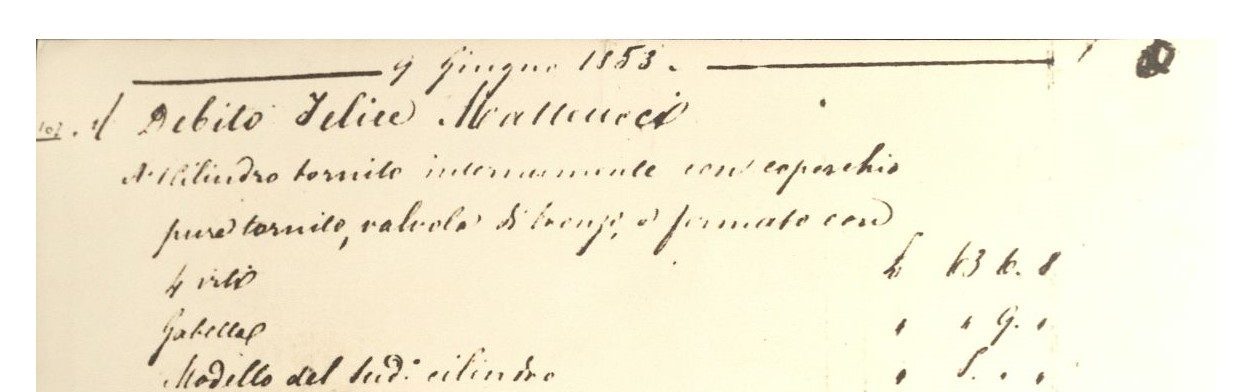 9 Giugno 1853.
107. Debito Felice Matteucci
N° 1 Cilindro tornito internamente con coperchio
pure tornito, valvola di bronzo, e fermato con
4 viti L 13
Gabella " " 9. "
Modello del sud.° cilindro " 5. " "